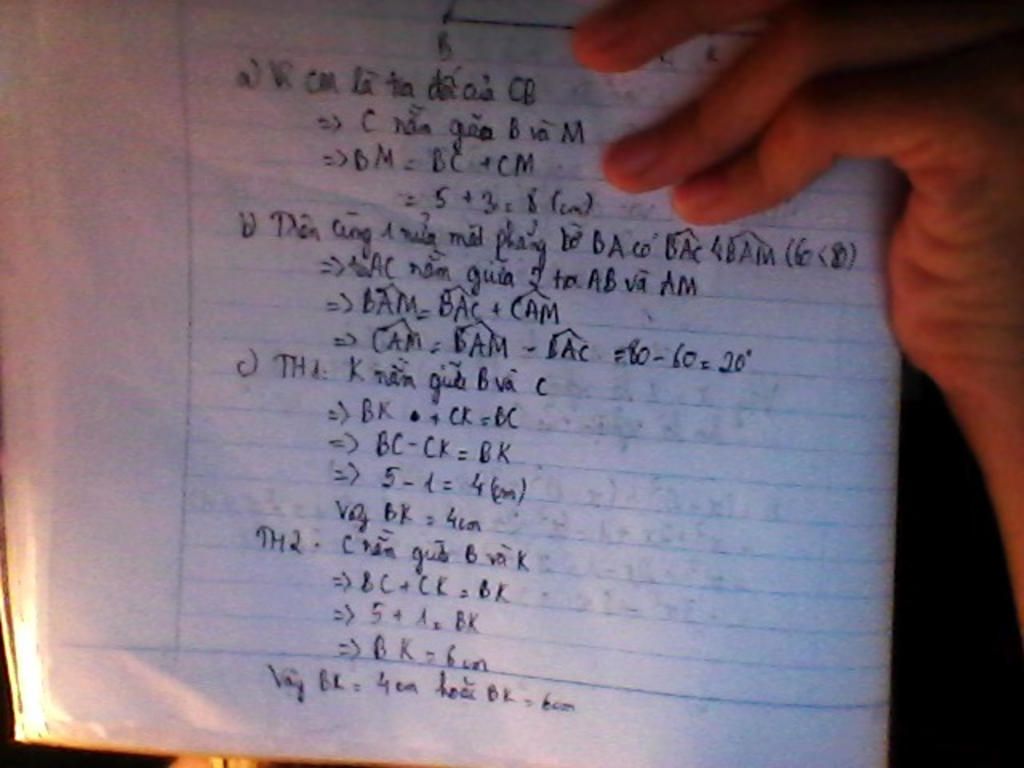 B
a) Vì CM là tia đối của CB
=> C nằm giữa B và M
=> BM = BC + CM
= 5 + 3 = 8 (cm)
b) Trên cùng 1 nửa mặt phẳng bờ BA có BAC < BAM (60 < 80)
=> tia AC nằm giữa 2 tia AB và AM
=> BAM = BAC + CAM
=> CAM = BAM - BAC = 80 - 60 = 20°
c) TH1: K nằm giữa B và C
=> BK + CK = BC
=> BC - CK = BK
=> 5 - 1 = 4 (cm)
Vậy BK = 4cm
TH2: C nằm giữa B và K
=> BC + CK = BK
=> 5 + 1 = BK
=> BK = 6cm
Vậy BK = 4cm hoặc BK = 6cm